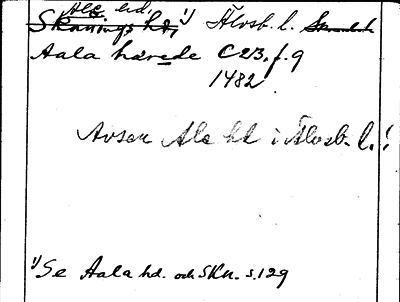 Ale hd.
Skånings hd, 1) Älvsb. l.
Aala hærede C 23, f. 9
1482
Avser Ale hd i Älvsb. l.!
1) Se Aala hd. och SKn. s. 129